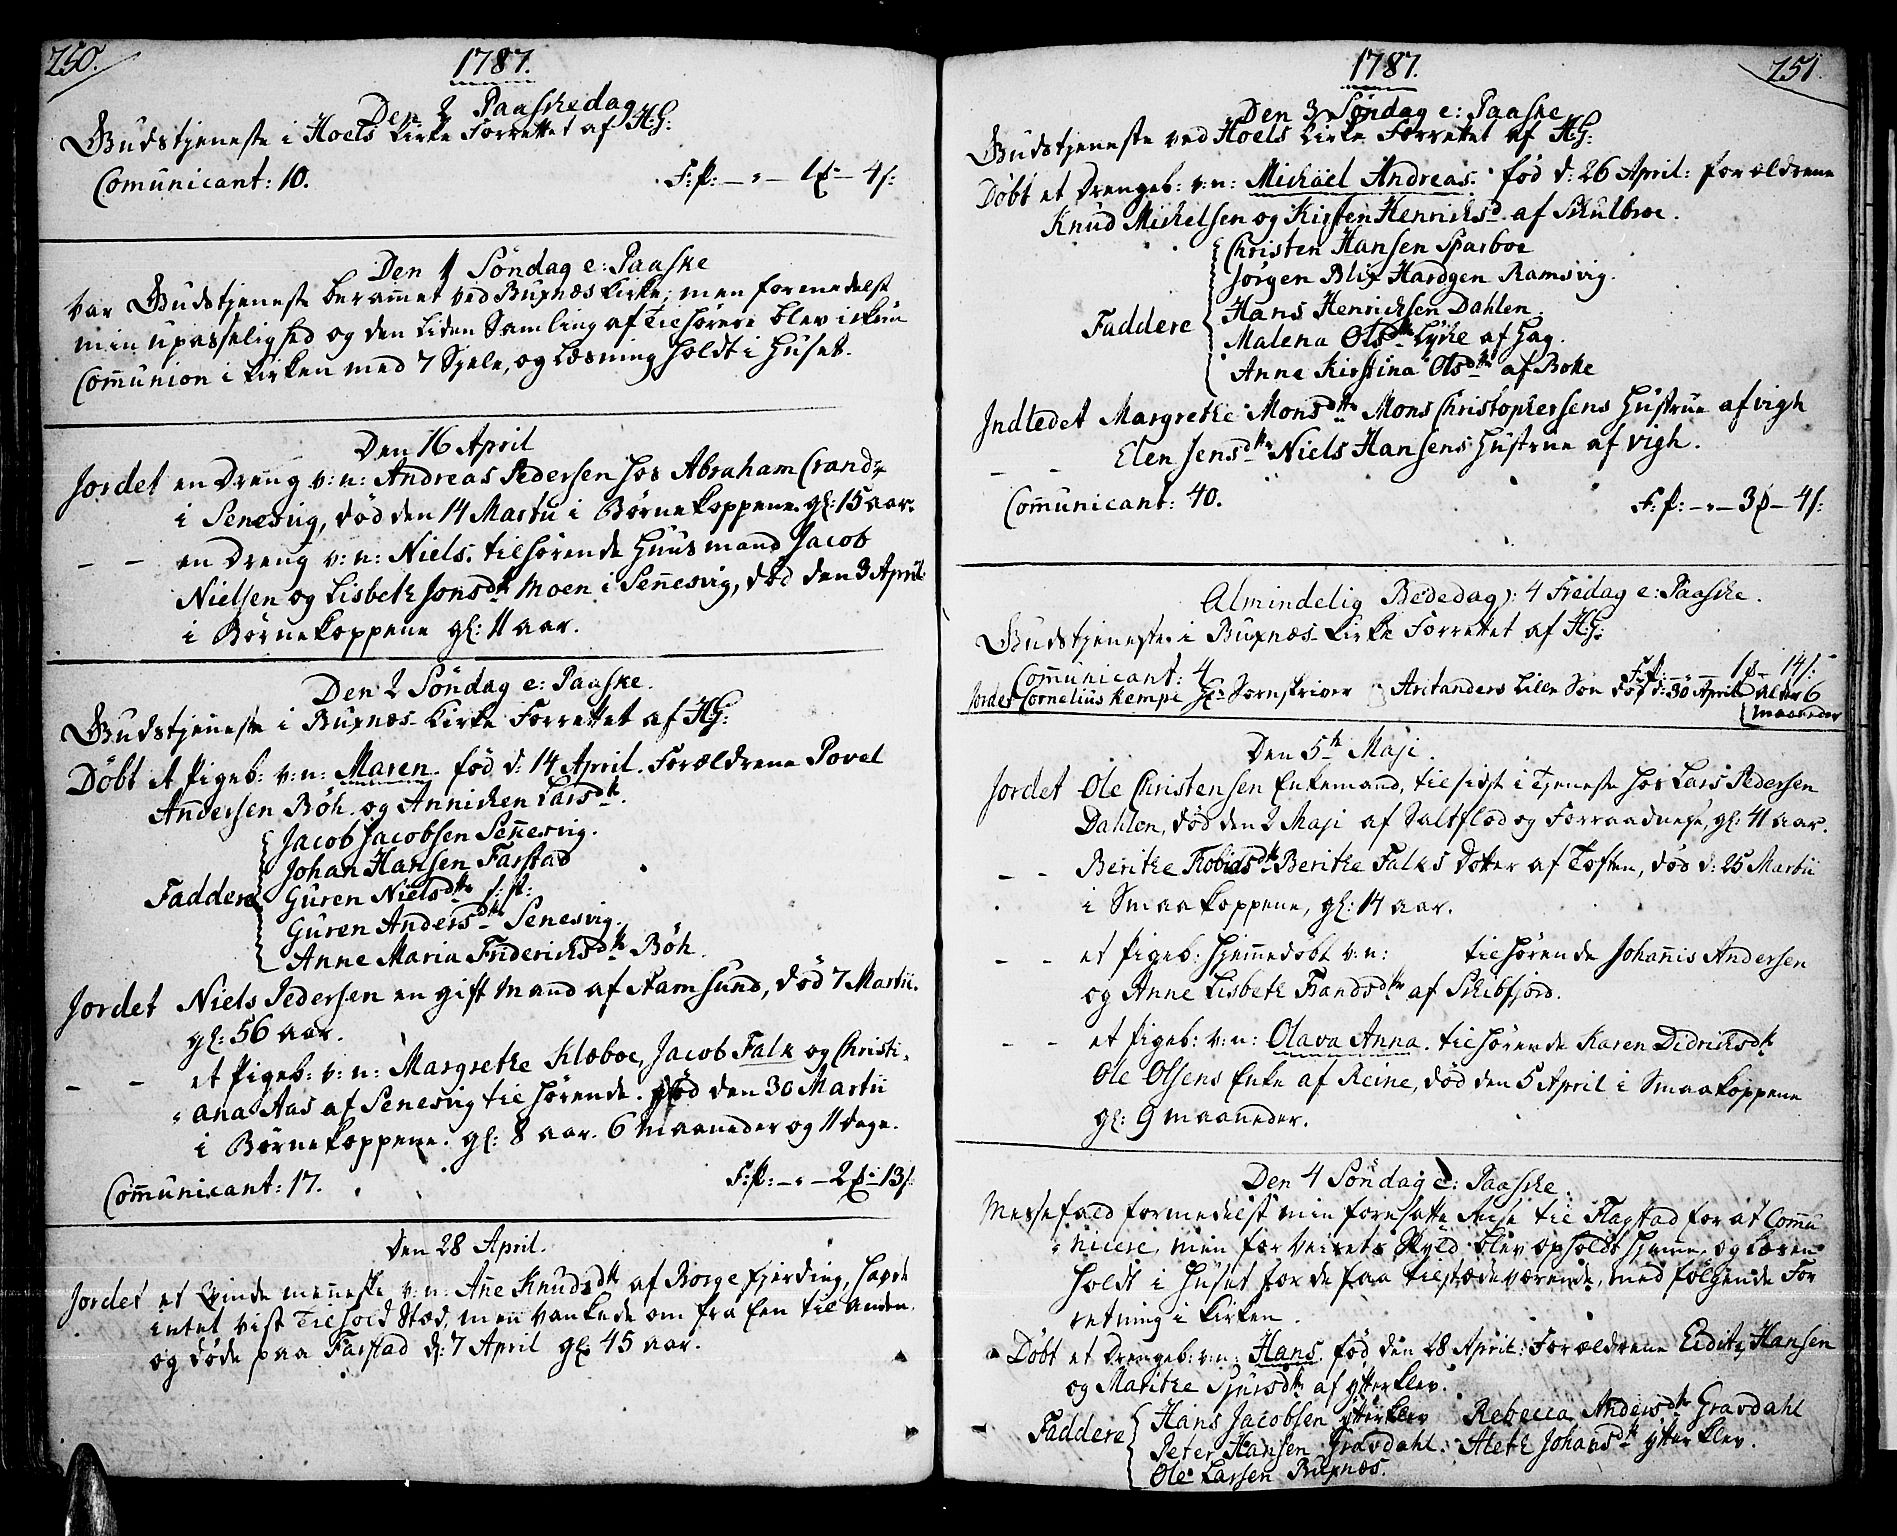 250.
1787.
Den 2 Paaskedag
Gudstjeneste i Hoels Kirke Forrettet af H:G:
Comunicant: 10.
F:P: — " — 1 — 4 s:
Den 1 Søndag e: Paaske
Var Gudstjeneste beram̄et ved Buxnæs Kirke, men formedelst
min upasselighed og den liden Samling af Tilhørere blev ickun
Com̄union i Kirken med 7 Sjele, og Læsning holdt i Huset.
Den 16 April
Jordet en Dreng v: n: Andreas Pedersen hos Abraham
i Senesvig, død den 14 Martii i Børnekoppene. gl: 15 aar.
— — en Dreng v: n: Niels. tilhørende Huusmand Jacob
Nielsen og Lisbeth Jonsdtr Moen i Sen̄esvig, død den 3 April
i Børnekoppene gl: 11 aar.
Den 2 Søndag e: Paaske.
Gudstjeneste i Buxnæs Kirke Forrettet af H:G:
Döbt et Pigeb: v: n: Maren. fød d: 14 April. Forældrene Povel
Andersen Böh. og Annichen Larsdtr.
Jacob Jacobsen Sen̄esvig.
Johan Hansen Farstad
Faddere Guren Nielsdtr
Guren Andersdtr Senesvig.
Anne Maria Friderichsdtr Böh.
Jordet Niels Pedersen en gift Mand af Stamsund, død 7 Martii.
gl: 56 aar.
— — et Pigeb: v: n: Margrethe Klæboe, Jacob Falk og Christi-
ana Aas af Senesvig tilhørende. død den 30 Martii
i Börnekoppene. gl: 8 aar. 6 maaneder og 11 dage.
Com̄unicant: 17.
F:P: — " — 2 — 13 s:
Den 28 April.
Jordet et Qvinde men̄eske v: n: An̄e Knudsdtr af Borge fjerding, hafde
intet vist Tilhold Stæd, men vankede om fra Een til Anden.
og døde paa Farstad d: 7 April gl: 45 aar.
251
1787.
Den 3 Søndag e: Paaske
Gudstjeneste ved Hoels Kirke Forrettet af H:G:
Döbt et Drengeb: v: n: Michael Andreas. fød d: 26 April: forældrene
Knud Michelsen og Kirsten Henrichsd. af Skulbroe.
Christen Hansen Sparboe
Jørgen Blix Hardgen Ramsvig.
Faddere Hans Henrichsen Dahlen.
Malena Olsdtr Lyche af Hag.
Anne Kirstina Olsdtr af Bolle
Indledet Margrethe Monsdtr Mons Christophersens Hustrue af vigh
— — Elen Jensdtr Niels Hansens Hustrue af vigh.
Com̄unicant: 40.
F:P: — " — 3 — 4 s:
Almindelig Bededag: 4 Fredag e: Paaske.
Gudstjeneste i Buxnæs Kirke Forrettet af H:G:
Com̄unicant: 4
F:P: — " — 1 — 14 s:
Jordet Cornelius Kempe Hr Sornskriver Arctanders lille Søn død d: 30 April alder 6
maaneder
Den 5te Maji
Jordet Ole Christensen Enkemand, tilsidst i Tjeneste hos Lars Pedersen
Dahlen, død den 2 Maji af Saltflod og Forraadnelse, gl: 41 aar.
— — Berithe Tobiasdtr Berithe Falks Dotter af Toften, død d: 25 Martii
i Smaakoppene, gl: 14 aar.
— — et Pigeb: hjem̄edøbt v: n: tilhørende Johan̄is Andersen
og Anne Lisbeth Frandsdtr af Skibfjord.
— — et Pigeb: v: n: Olava Anna. tilhørende Karen Didrichsdtr
Ole Olsens Enke af Reine, død den 5 April i Smaakoppene
gl: 9 maaneder.
Den 4 Søndag e: Paaske.
Messefald formedelst min foresatte Reise til Flagstad for at Com̄u-
nicere, men for Veirets Skyld blev opholdt hjem̄e, og Læsen
holdt i Huset for de faa tilstædeværende, med følgende For
retning i Kirken.
Döbt et Drengeb: v: n: Hans. fød den 28 April. Forældrene Hansen
og Marithe Sjursdtr af ytterklev.
Faddere Hans Jacobsen ytterklev Rebecca Andersdtr Gravdahl
Peter Hansen Gravdahl. Aleth Johansdtr ytterklev.
Ole Larsen Buxnæs.